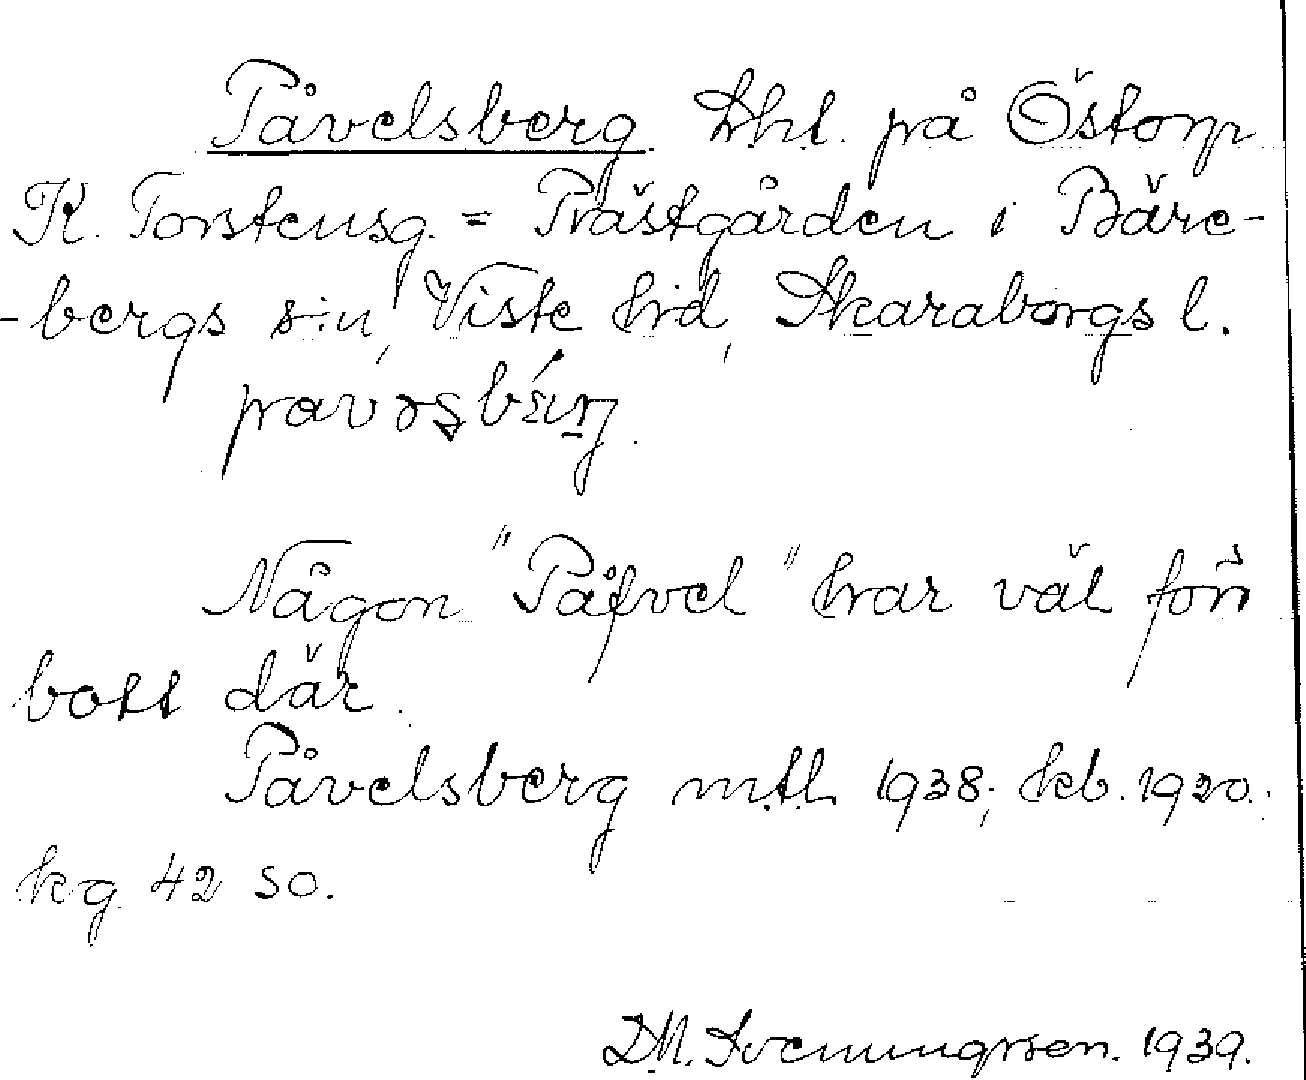 Påvelsberg. Lht. på Östorp
K. Torstensg. = Prästgården i Bäre-
-bergs s:n, Viste hrd, Skaraborgs l.
Någon "Påfvel" har väl förr
bott där.
Påvelsberg mtl. 1938; kb. 1920.
kg 42 so.
D.M. Svenungsson. 1939.